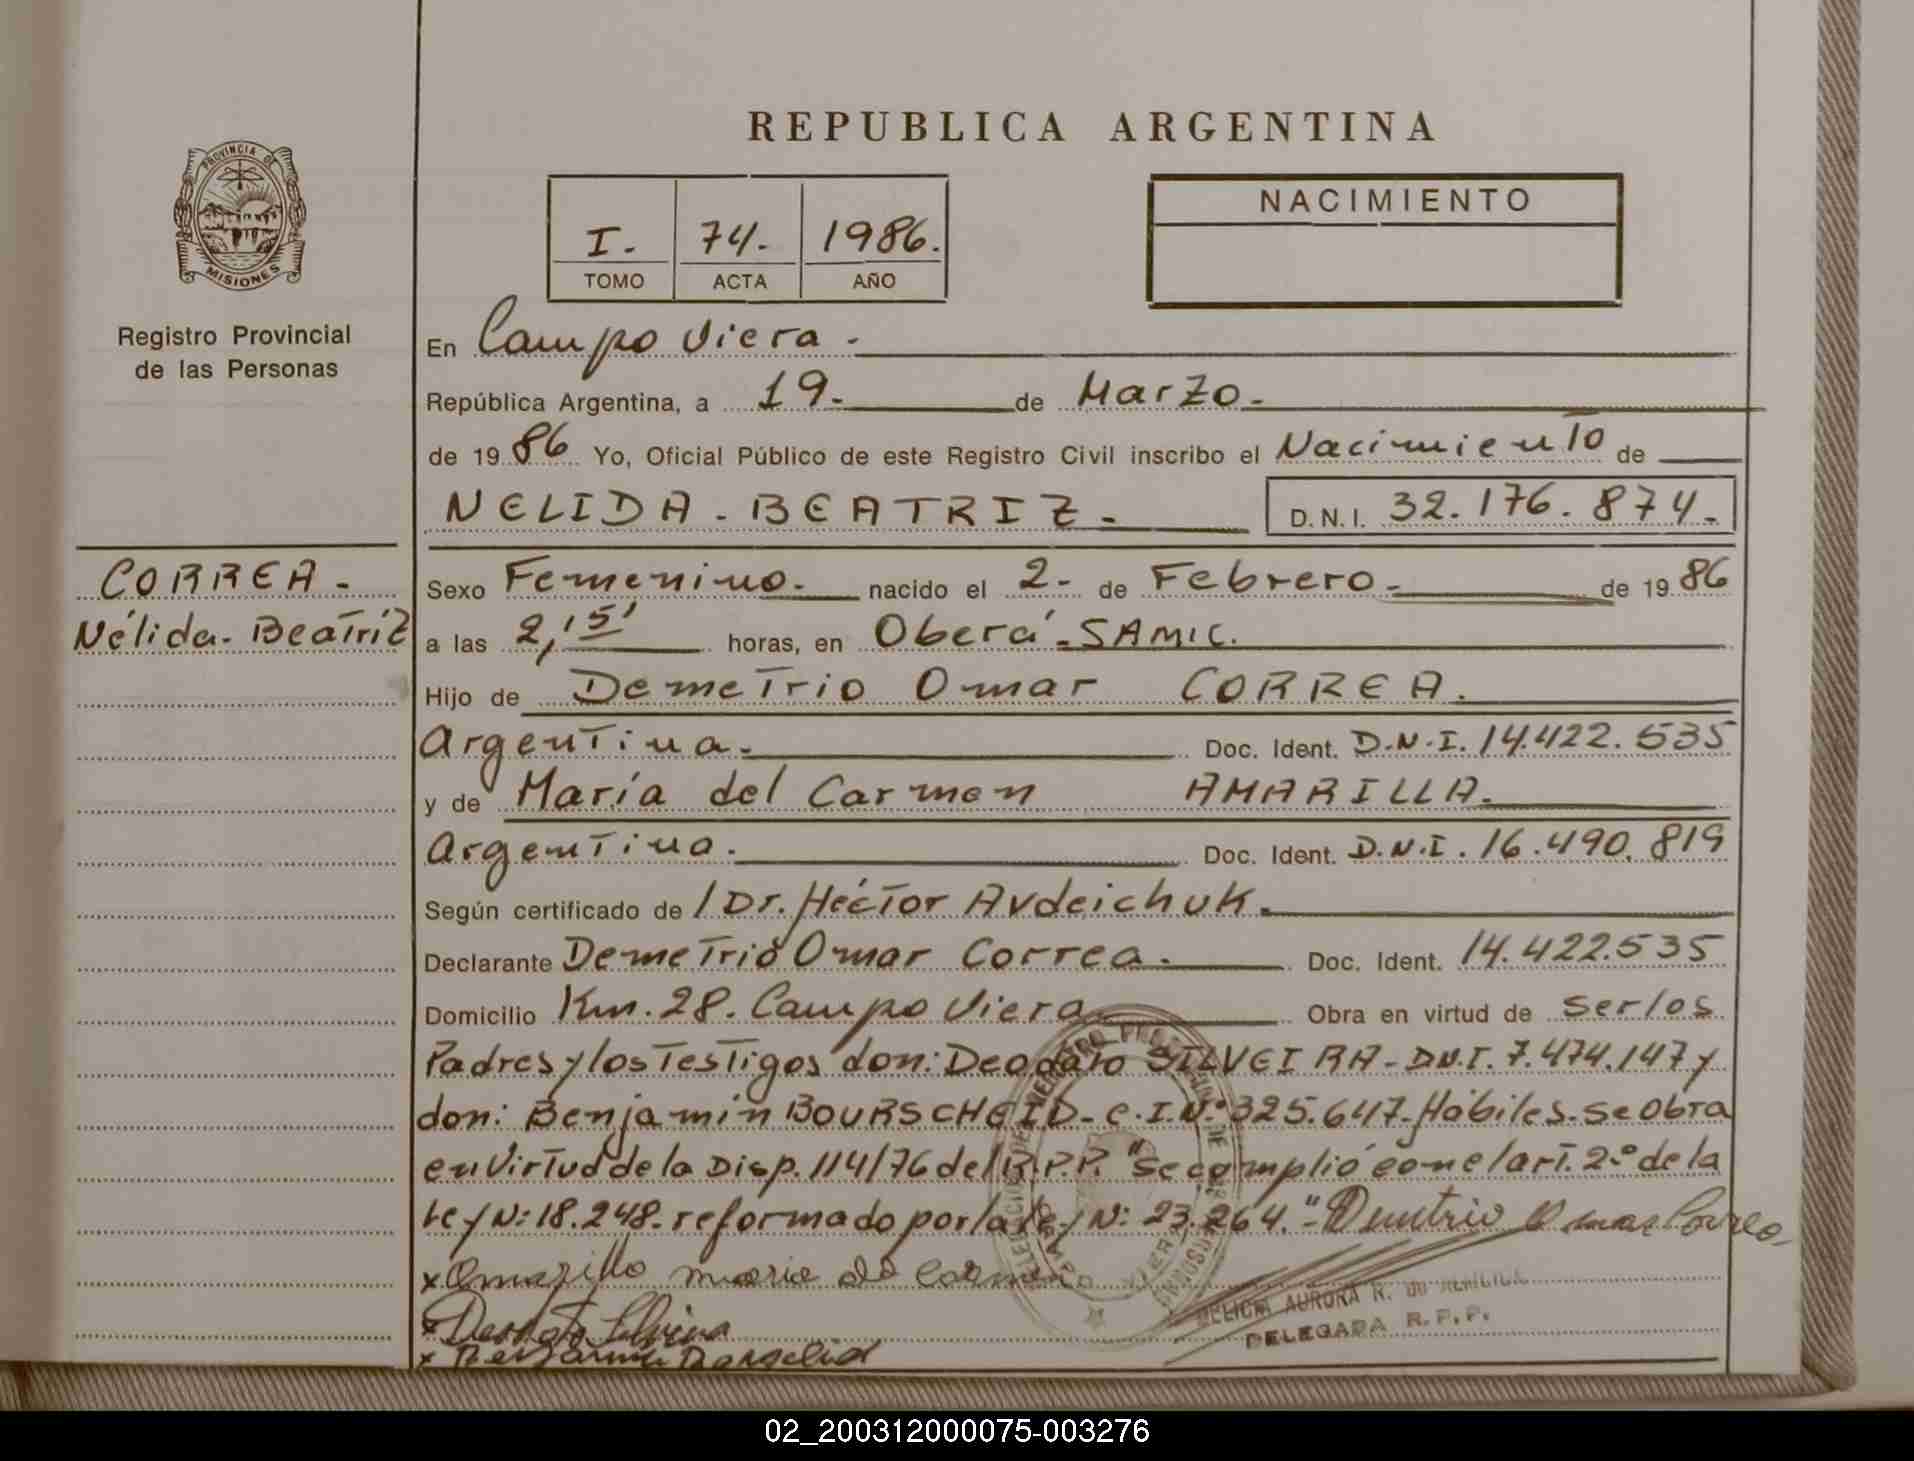 REPUBLICA ARGENTINA
PROVINCIA DE
MISIONES
Registro Provincial
de las Personas
I. 74. 1986.
TOMO ACTA AÑO
NACIMIENTO
En Campo Viera.
República Argentina, a 19. de Marzo.
de 1986 Yo, Oficial Público de este Registro Civil inscribo el Nacimiento de
NELIDA. BEATRIZ. D.N.I. 32.176.874.
CORREA.
Nélida. Beatriz
Sexo Femenino. nacido el 2. de Febrero. de 1986
a las 2,15' horas, en Oberá-SAMIC.
Hijo de Demetrio Omar CORREA.
Argentina. Doc. Ident. D.N.I. 14.422.535
y de María del Carmen AMARILLA.
Argentina. Doc. Ident. D.N.I. 16.490.819
Según certificado de / Dr. Héctor Avdeichuk.
Declarante Demetrio Omar Correa. Doc. Ident. 14.422.535
Domicilio Km. 28. Campo Viera. Obra en virtud de ser los
Padres y los Testigos don: Deodato SILVEIRA-DN.I. 7.474.147 y
don: Benjamín BOURSCHEID-C.I.Nº 325.647-Hábiles-se obra
en Virtud de la Disp. 114/76 del R.P.P. "Se complió con el art. 2º de la
Ley N: 18.248-reformado por la ley N: 23.264."- Demetrio Omar Correa
x Amarilla maria del Carmen
x Deodato Silveira
x Benjamin
DELICIA AURORA R. DE
DELEGADA R.P.P.
02_200312000075-003276